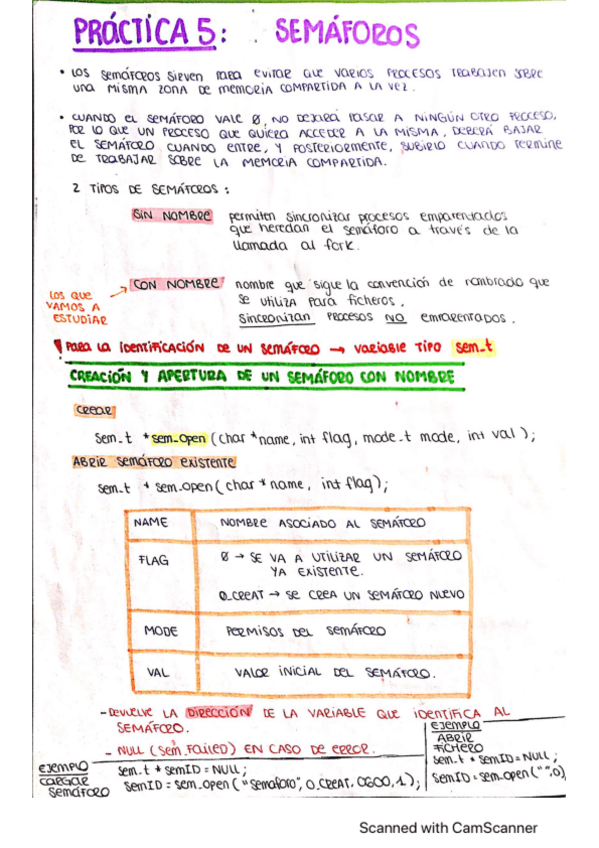 PRÁCTICA 5: SEMÁFOROS
• LOS SEMÁFOROS SIRVEN PARA EVITAR QUE VARIOS PROCESOS TRABAJEN SOBRE
UNA MISMA ZONA DE MEMORIA COMPARTIDA A LA VEZ.
• CUANDO EL SEMÁFORO VALE 0, NO DEJARÁ PASAR A NINGÚN OTRO PROCESO,
POR LO QUE UN PROCESO QUE QUIERA ACCEDER A LA MISMA, DEBERÁ BAJAR
EL SEMÁFORO CUANDO ENTRE, Y POSTERIORMENTE, SUBIRLO CUANDO TERMINE
DE TRABAJAR SOBRE LA MEMORIA COMPARTIDA.
2 TIPOS DE SEMÁFOROS:
SIN NOMBRE permiten sincronizar procesos emparentados
que heredan el semáforo a través de la
llamada al fork.
CON NOMBRE nombre que sigue la convención de nombrado que
se utiliza para ficheros.
Sincronizan PROCESOS NO EMPARENTADOS.
LOS QUE
VAMOS A
ESTUDIAR
! PARA LA IDENTIFICACIÓN DE UN SEMÁFORO → VARIABLE TIPO sem_t
CREACIÓN Y APERTURA DE UN SEMÁFORO CON NOMBRE
CREAR
sem_t *sem_open (char *name, int flag, mode_t mode, int val);
ABRIR SEMÁFORO EXISTENTE
sem_t * sem_open (char * name, int flag);
NAME NOMBRE ASOCIADO AL SEMÁFORO
FLAG 0 → SE VA A UTILIZAR UN SEMÁFORO
YA EXISTENTE.
O_CREAT → SE CREA UN SEMÁFORO NUEVO
MODE PERMISOS DEL SEMÁFORO
VAL VALOR INICIAL DEL SEMÁFORO.
- DEVUELVE LA DIRECCIÓN DE LA VARIABLE QUE IDENTIFICA AL
SEMÁFORO.
- NULL (SEM_FAILED) EN CASO DE ERROR.
EJEMPLO
CARGAR
SEMÁFORO
sem_t * semID = NULL;
semID = sem_open ("semaforo", O_CREAT, 0600, 1);
EJEMPLO
ABRIR
FICHERO
sem_t * semID = NULL;
semID = sem_open (" ", 0)
Scanned with CamScanner